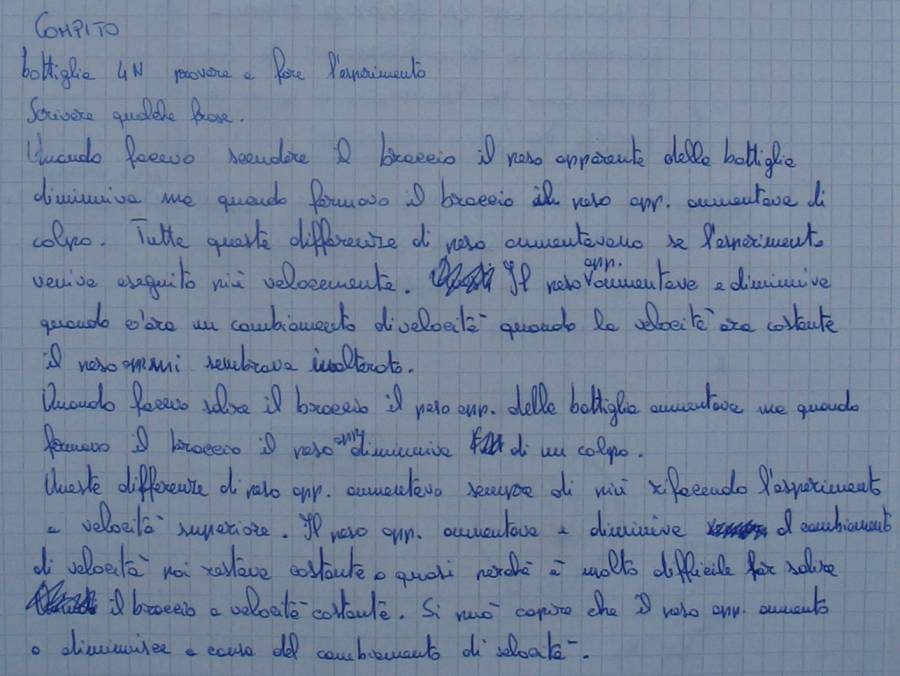 COMPITO
bottiglia 4N provare a fare l'esperimento
Scrivere qualche frase.
Quando facevo scendere il braccio il peso apparente della bottiglia
diminuiva ma quando fermavo il braccio il peso app. aumentava di
colpo. Tutte queste differenze di peso aumentavano se l'esperimento
veniva eseguito più velocemente. Il peso app. aumentava e diminuiva
quando c'era un cambiamento di velocità quando la velocità era costante
il peso sembrava inalterato.
Quando facevo salire il braccio il peso app. della bottiglia aumentava ma quando
fermavo il braccio il peso app diminuiva di un colpo.
Queste differenze di peso app. aumentavo sempre di più rifacendo l'esperimento
a velocità superiore. Il peso app. aumentava e diminuiva al cambiamento
di velocità poi restava costante o quasi perché è molto difficile far salire
il braccio a velocità costante. Si può capire che il peso app. aumenta
o diminuisce a causa del cambiamento di velocità.